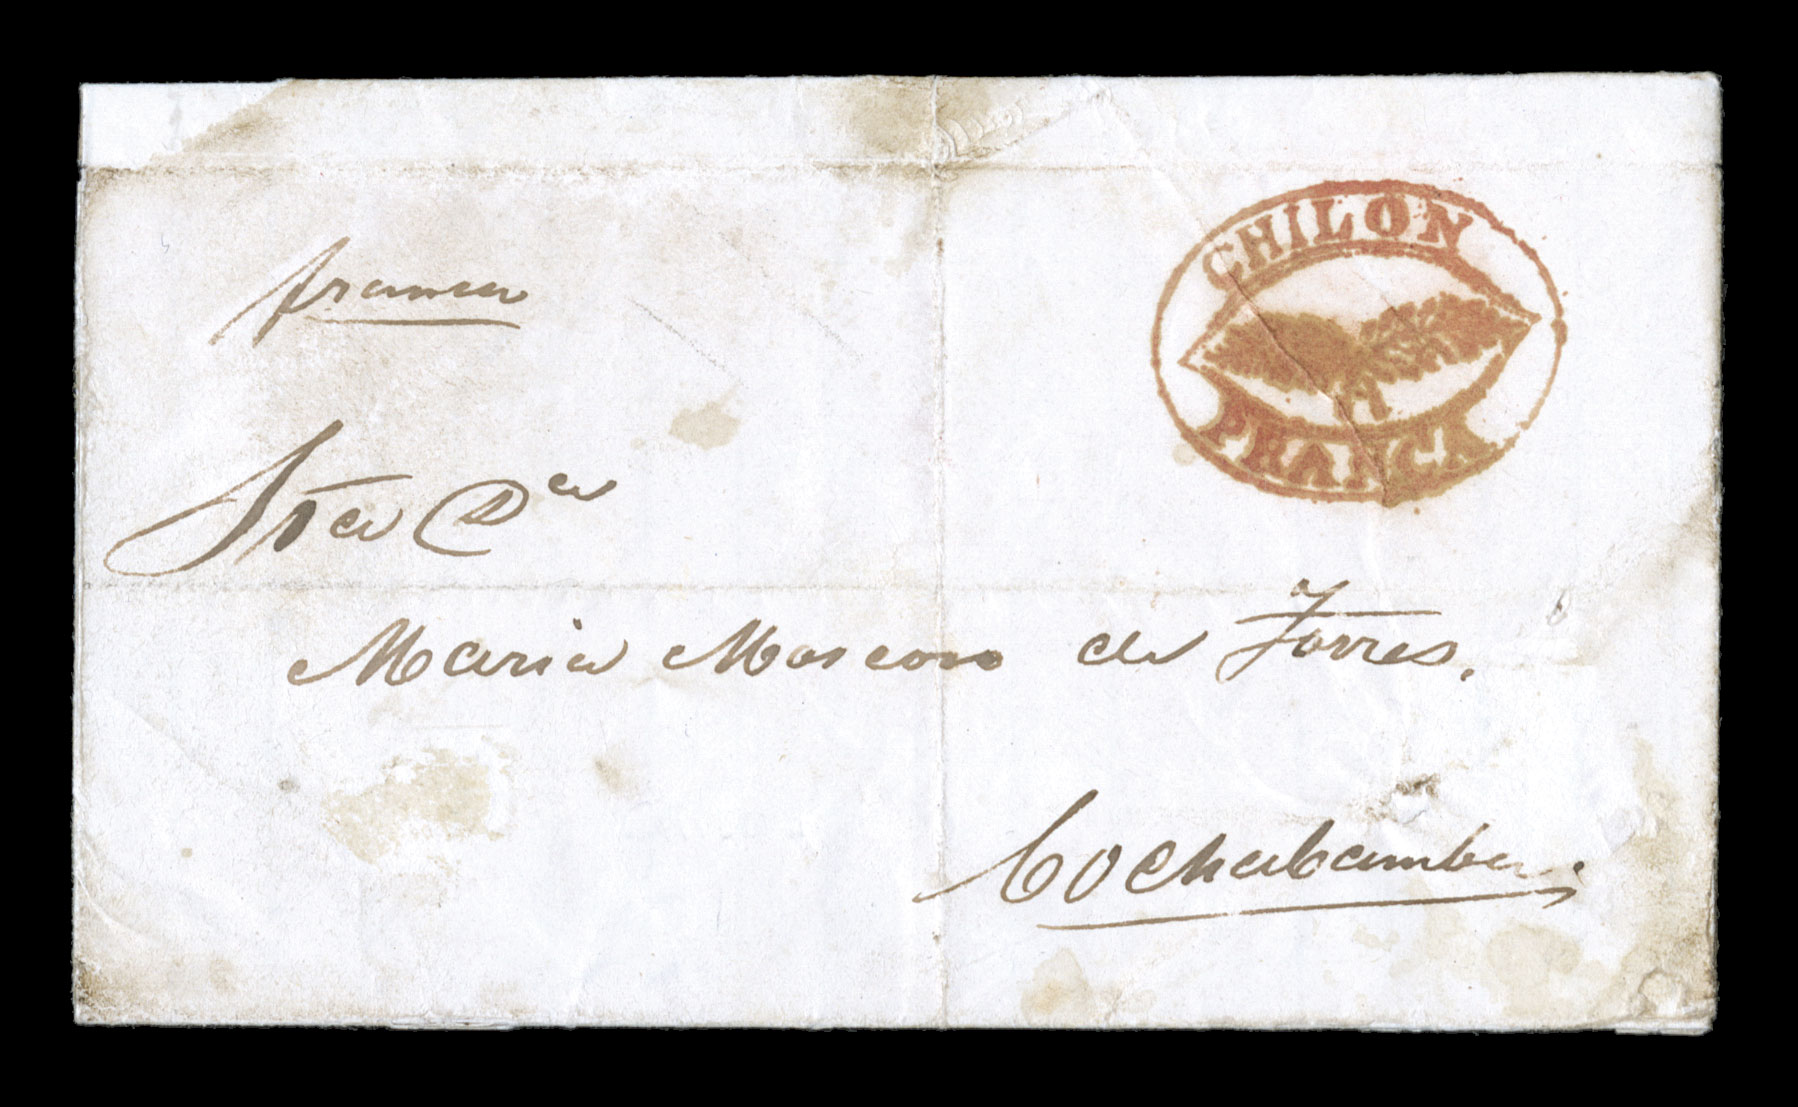 CHILON
FRANCA
franca
Sra Da
Maria Moscoso de Torres.
Cochabamba.